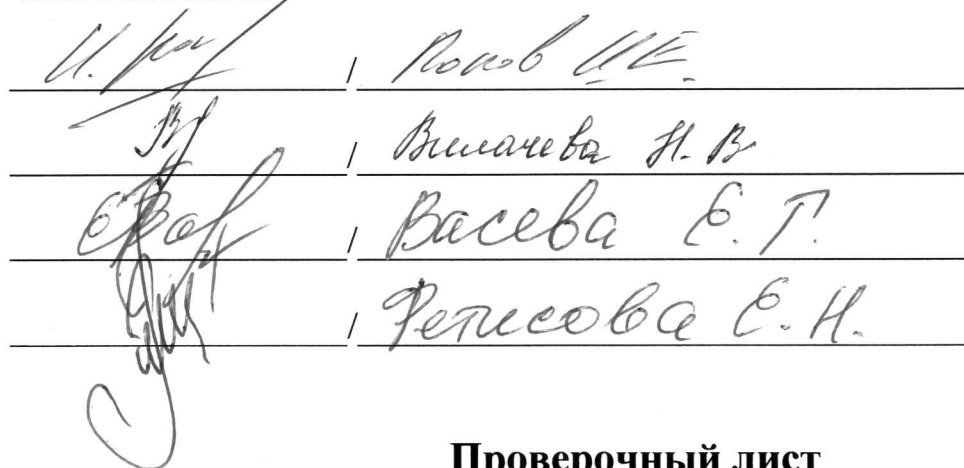 / Попов И.Е.
/ Вилачева Н.В
/ Васева Е.Г.
/ Фетисова Е.Н.
Проверочный лист